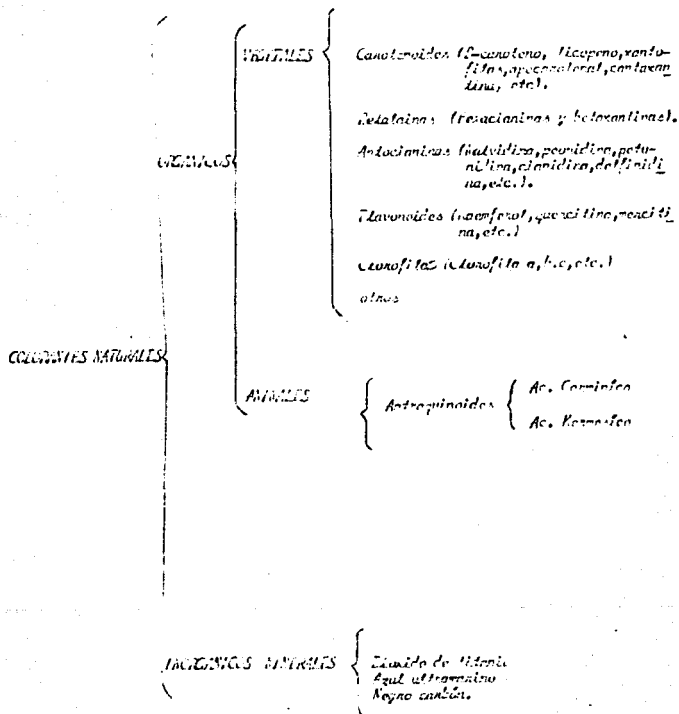 VEGETALES
Carotenoides (β-caroteno, licopeno, xanto-
filas, apocarotenal, cantaxan
tina, etc).
Betalainas (betacianinas y betaxantinas).
ORGANICOS
Antocianinas (malvidina, peonidina, petu-
nidina, cianidina, delfinidi
na, etc.).
Flavonoides (kaemferol, quercitina, mericiti
na, etc.)
Clorofilas (Clorofila a, b, c, etc.)
otros
COLORANTES NATURALES
ANIMALES
Antraquinoides
Ac. Carmínico
Ac. Kermesico
INORGANICOS MINERALES
Dioxido de titanio
Azul ultramarino
Negro carbón.